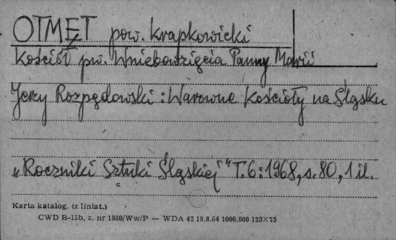 OTMĘT pow. krapkowicki
Kościół pw. Wniebowzięcia Panny Marii
Jerzy Rozpędowski: Warowne kościoły na Śląsku
"Roczniki Sztuki Śląskiej" T. 6: 1968, s. 80, 1 il.
Karta katalog. (z liniat.)
CWD B-15b, z. nr 1860/Ww/P — WDA 42 19.8.64 1000.000 125×75